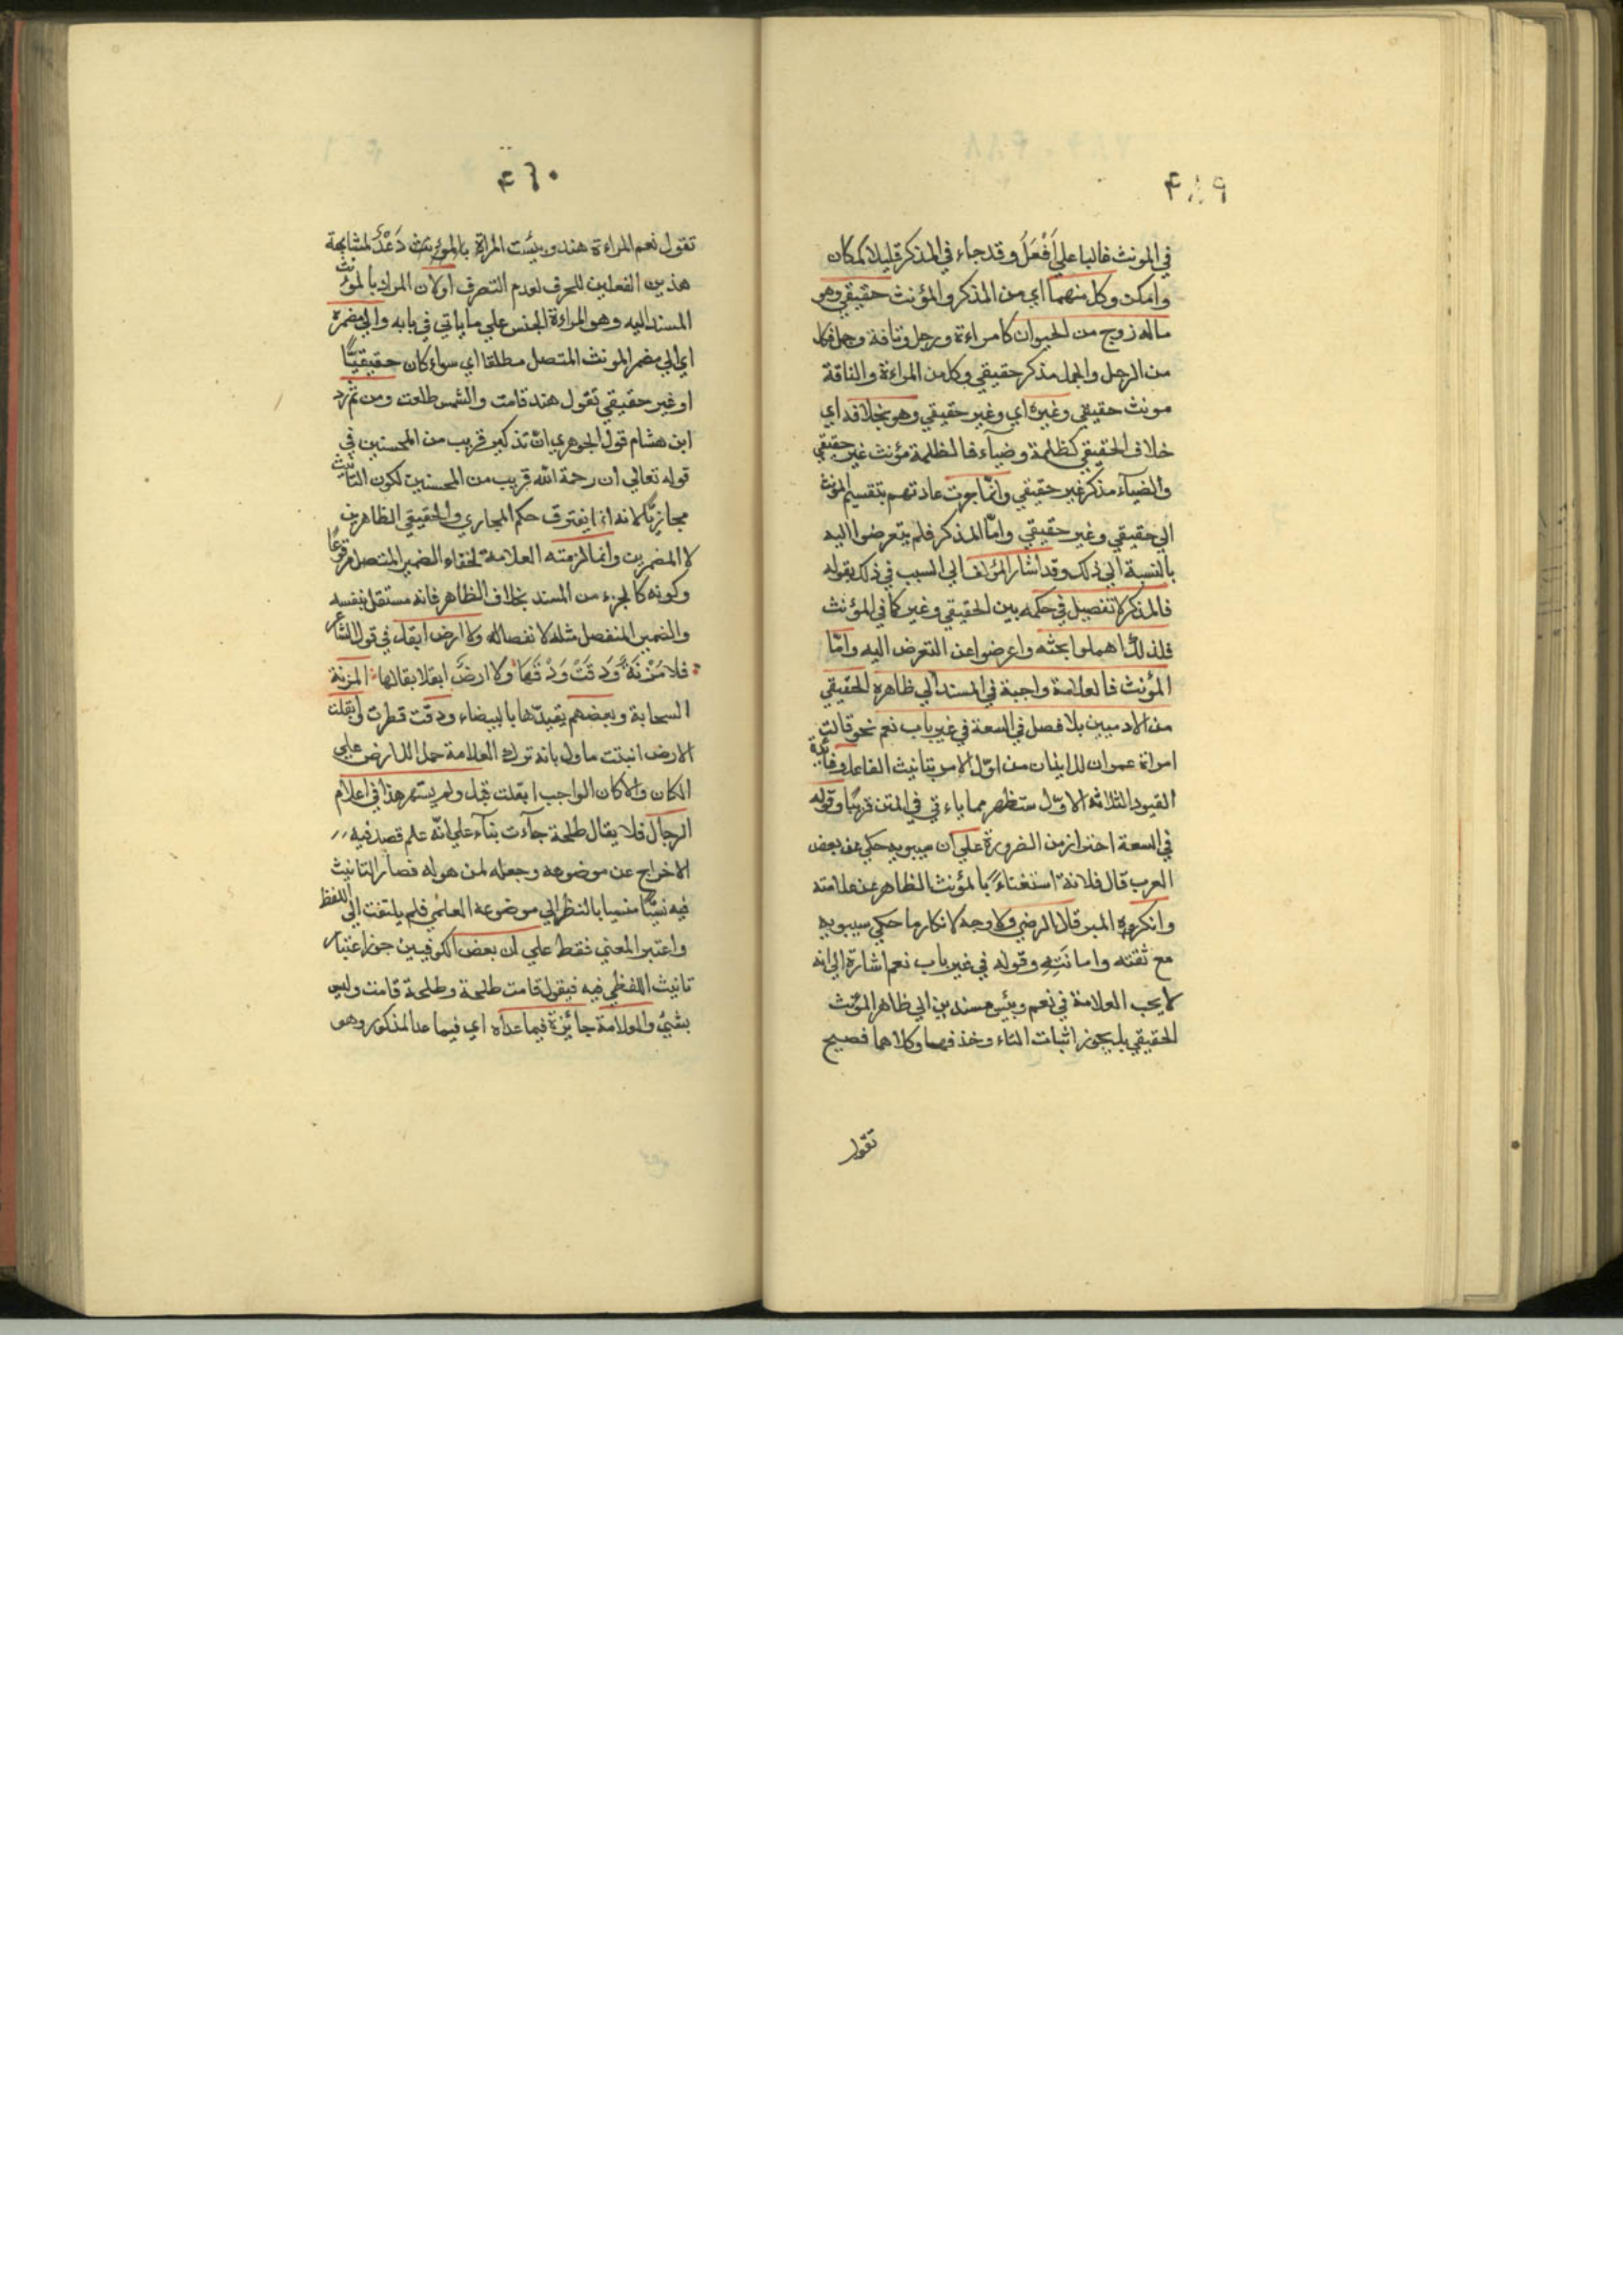 ٤٨٩
في المونث غالبا على أَفْعَلُ وقد جاء في المذكر قليلا كمكان
وامكن وكل منهما اي من المذكر والمؤنث حقيقي وهو
ماله زوج من الحيوان كامراءة ورجل وناقة وجمل فكل
من الرجل والجمل مذكر حقيقي وكل من المراءة والناقة
مونث حقيقي وغيره اي وغير حقيقي وهو بخلافه اي
خلاف الحقيقي كظلمة وضياء فالظلمة مؤنث غير حقيقي
والضيآء مذكر غير حقيقي وانما جرت عادتهم بتقسيم المونث
الي حقيقي وغير حقيقي وامّا المذكر فلم يتعرضوا اليه
بالنسبة الي ذلك وقد اشار المؤلف الي السبب في ذلك بقوله
فالمذكر لا تفصيل في حكمه بين الحقيقي وغيره كما في المؤنث
فلذلك اهملوا بحثه واعرضوا عن التعرض اليه وامّا
المؤنث فالعلامة واجبة في المسند الي ظاهره الحقيقي
من الادميين بلا فصل في السعة في غير باب نعم نحو قالت
امراة عمران للايذان من اوّل الامر بتانيث الفاعل وفائدة
القيود الثلاثة الاول ستظهر مما ياءتي في المتن قريبًا وقوله
في السعة احتراز من الضرورة علي ان سيبويه حكي عن بعض
العرب قال فلانة استغناءً بالمؤنث الظاهر عن علامته
وانكره المبرد قال الرضي ولا وجه لانكار ما حكي سيبويه
مع ثقته وامانَتِهِ وقوله في غير باب نعم اشارة الي انه
لا يجب العلامة في نعم وبئس مسندين الي ظاهر المؤنث
الحقيقي بل يجوز اثبات التاء وحذفها وكلاهما فصيح
تقول
٤٦٠
تقول نعم المراءة هند وبئست المراة بالمؤنث دَعْدُ لمشابهة
هذين الفعلين للحرف لعدم التصرف اولان المراد بالمؤنث
المسند اليه وهو المراءة الجنس علي ما ياتي في بابه والي مضمره
اي الي مضمر المونث المتصل مطلقا اي سواء كان حقيقيًّا
او غير حقيقي تقول هند قامت والشمس طلعت ومن ثم رد
ابن هشام قول الجوهري ان تذكير قريب من المحسنين في
قوله تعالي ان رحمة الله قريب من المحسنين لكون التانيث
مجازيًّا لانه انما يفترق حكم المجازي والحقيقي الظاهرين
لا المضمرين وانما لزمته العلامة لخفاء الضمير المتصل مرفوعًا
وكونه كالجزء من المسند بخلاف الظاهر فانه مستقل بنفسه
والضمير المنفصل مثله لانفصاله ولا ارض ابقل في قول الشاعر
فلا مُزْنَةٌ وَدَقَتْ وَدْقَهَا ولا ارضَ ابقل ابقالها المزنة
السحابة وبعضهم يقيدّها بالبيضاء ودقت قطرت وابقلت
الارض انبتت ماول بانه ترك العلامة حملا للارض علي
المكان والا كان الواجب ابقلت قبل ولم يشتهر هذا في اعلام
الرجال فلا يقال طلحة جآءت بنآء علي انّه علم قصد فيه
الاخراج عن موضوعه وجعله لمن هو له فصار التانيث
فيه نسيًا منسيا بالنظر الي موضوعه العلمي فلم يلتفت الي اللفظ
واعتبر المعني فقط علي ان بعض الكوفيين جوز اعتبار
تانيث اللفظي فيه فيقول قامت طلحة وطلحة قامت وليس
بشئ والعلامة جائزة فيما عداه اي فيما عدا المذكور وهو